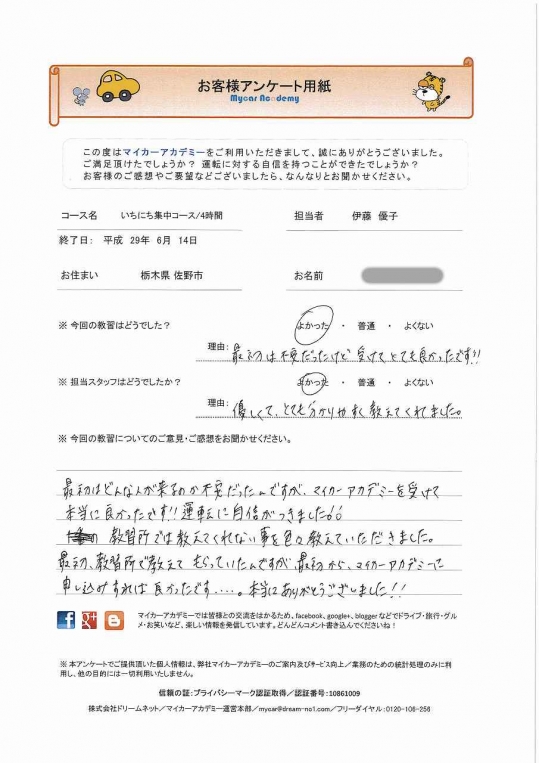 お客様アンケート用紙
Mycar Academy
この度はマイカーアカデミーをご利用いただきまして、誠にありがとうございました。
ご満足頂けたでしょうか？ 運転に対する自信を持つことができたでしょうか？
お客様のご感想やご要望などございましたら、なんなりとお聞かせください。
コース名 いちにち集中コース/4時間 担当者 伊藤 優子
終了日： 平成 29年 6月 14日
お住まい 栃木県 佐野市 お名前
※ 今回の教習はどうでした？ よかった ・ 普通 ・ よくない
理由： 最初は不安だったけど 受けてとても良かったです!!
※ 担当スタッフはどうでしたか？ よかった ・ 普通 ・ よくない
理由： 優しくて、とても分かりやすく教えてくれました。
※ 今回の教習についてのご意見・ご感想をお聞かせください。
最初はどんな人が来るのか不安だったんですが、マイカーアカデミーを受けて
本当に良かったです!! 運転に自信がつきました
教習所では教えてくれない事を色々教えていただきました。
最初、教習所で教えて もらっていたんですが 最初から、マイカーアカデミーに
申し込みすれば 良かったです....。本当にありがとうございました!!
マイカーアカデミーでは皆様との交流をはかるため、facebook、google+、blogger などでドライブ・旅行・グル
メ・お笑いなど、楽しい情報を発信しています。どんどんコメント書き込んでくださいね！
※ 本アンケートでご提供頂いた個人情報は、弊社マイカーアカデミーのご案内及びサービス向上／業務のための統計処理のみに利
用し、他の目的には一切利用いたしません。
信頼の証：プライバシーマーク認証取得／認証番号：10861009
株式会社ドリームネット／マイカーアカデミー運営本部／mycar@dream-no1.com／フリーダイヤル：0120-106-256